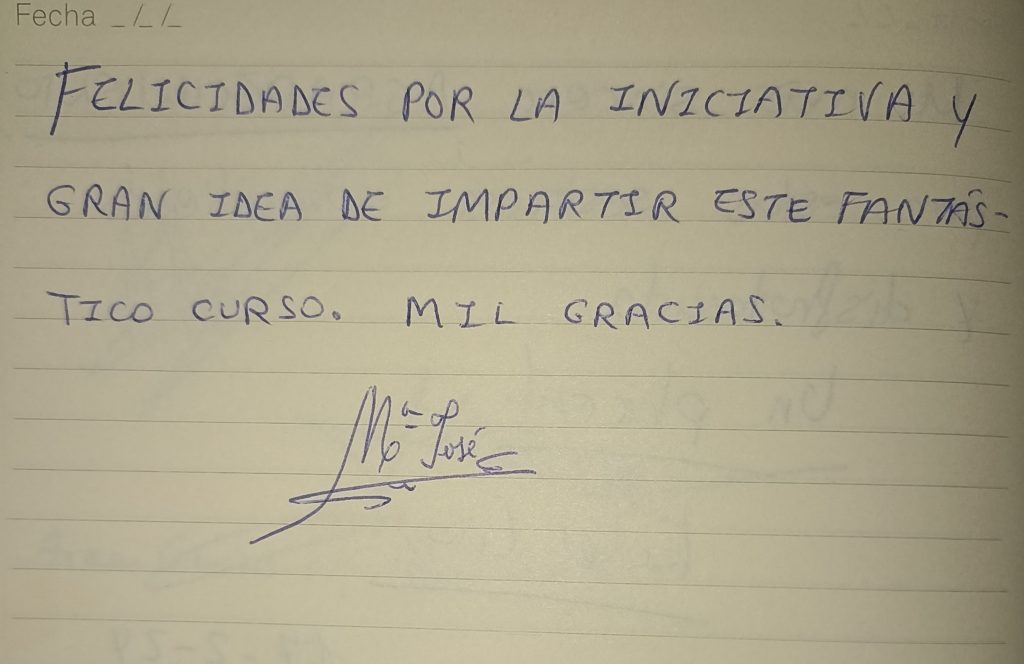 Fecha _/_/_
FELICIDADES POR LA INICIATIVA Y
GRAN IDEA DE IMPARTIR ESTE FANTÁS-
TICO CURSO. MIL GRACIAS.
Mª José